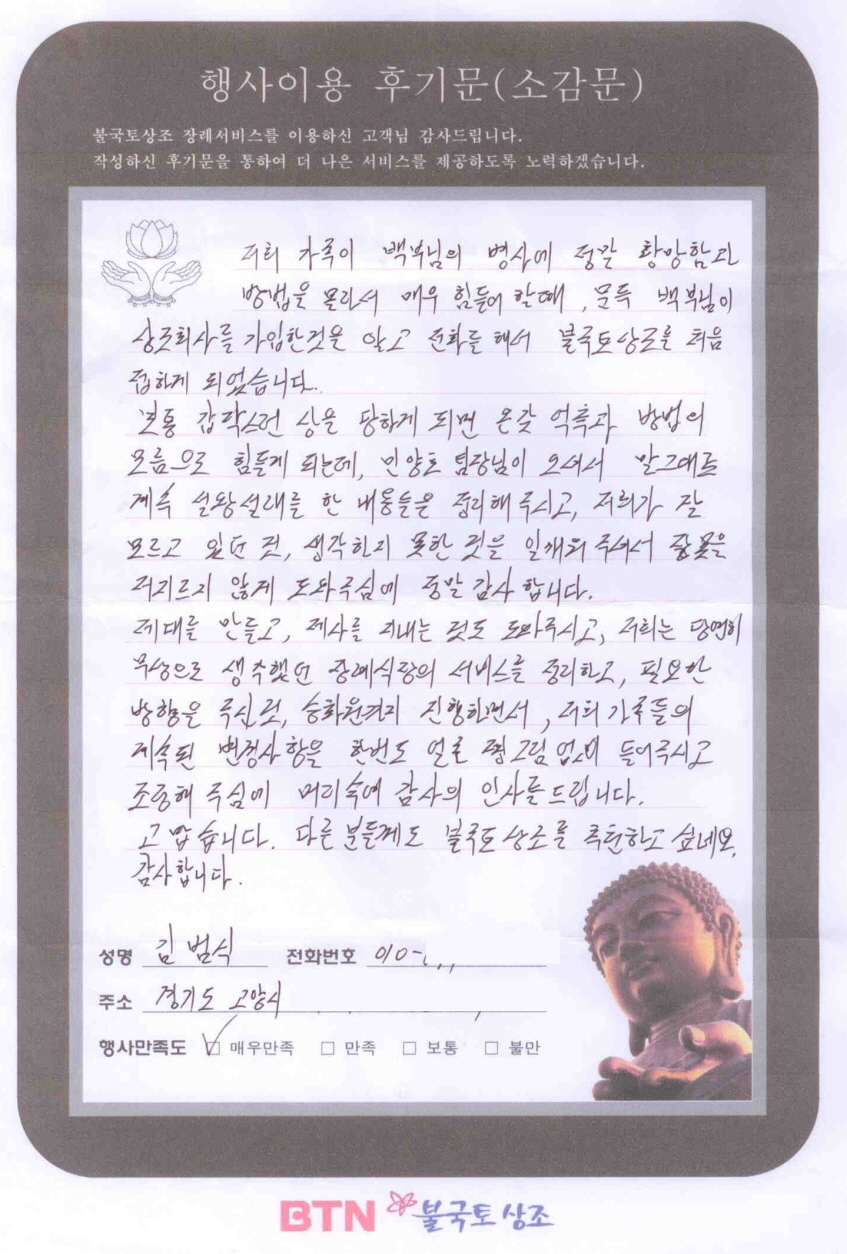 행사이용 후기문(소감문)
불국토상조 장례서비스를 이용하신 고객님 감사드립니다.
작성하신 후기문을 통하여 더 나은 서비스를 제공하도록 노력하겠습니다.
저희 가족이 백부님의 병사에 정말 황망함과
방법을 몰라서 매우 힘들어 할때, 문득 백부님이
상조회사를 가입한것을 알고 전화를 해서 불국토상조를 처음
접하게 되었습니다.
보통 갑작스런 상을 당하게 되면 온갖 억측과 방법의
모름으로 힘들게 되는데, 민양호 팀장님이 오셔서 말그대로
계속 설왕설래를 한 내용들은 정리해주시고, 저희가 잘
모르고 있던 것, 생각하지 못한 것을 일깨워 주셔서 잘못을
저지르지 않게 도와주심에 정말 감사 합니다.
제대를 만들고, 제사를 지내는 것도 도와주시고, 저희는 당연히
무상으로 생각했던 장례식장의 서비스를 정리하고, 필요한
방향을 주신것, 승화원까지 진행하면서, 저희 가족들의
계속된 변경사항을 한번도 얼굴 찡그림 없이 들어주시고
조정해 주심에 머리숙여 감사의 인사를 드립니다.
고맙습니다. 다른 분들께도 불국토상조를 추천하고 싶네요.
감사합니다.
성명 김범식 전화번호 010-
주소 경기도 고양시
행사만족도 ☑ 매우만족 □ 만족 □ 보통 □ 불만
BTN 불국토상조